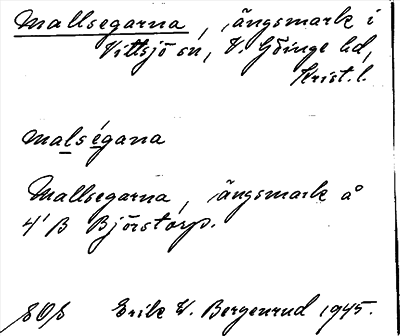 Mallsegarna, ängsmark i
Vittsjö sn, V. Göinge hd,
Krist. l.
malségana
Mallsegarna, ängsmark å
4' B Björstorp.
Erik W. Bergenrud 1945.